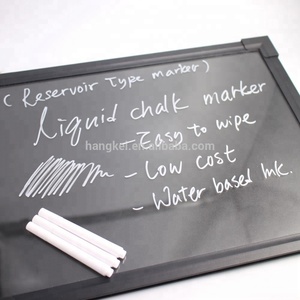 (Reservoir Type marker)
liquid chalk marker
- Easy to wipe
- Low cost
- Water based Ink.
hangkei.en.alibaba.com